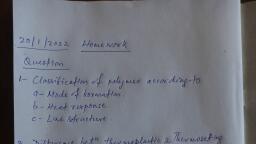 20/1/2022 Homework
Question
1- Classification of polymer according to
a- Mode of formation.
b- Heat response
c- Line structure
2. Difference betn thermoplastic & Thermosetting